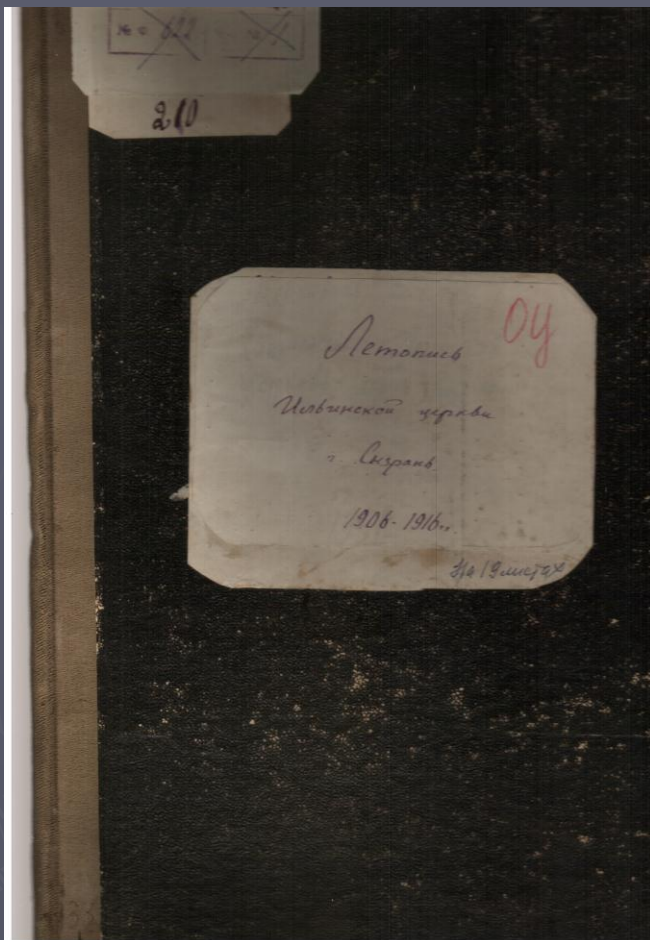 № 622
№
210
ОЦ
Летопись
Ильинской церкви
г. Сызрань
1906-1916гг.
На 19 листах